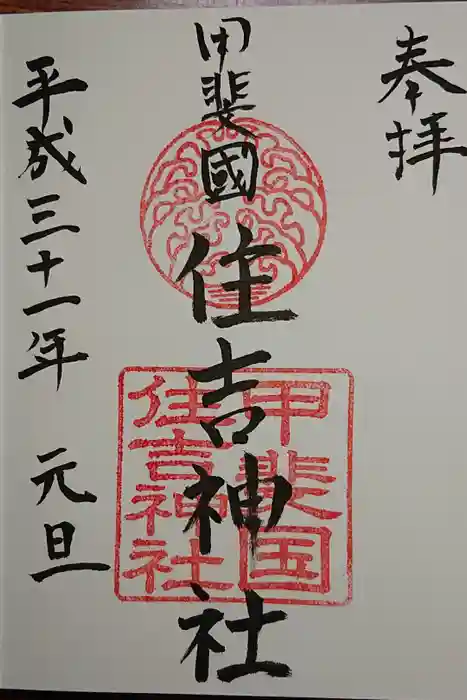 奉拝
甲斐國住吉神社
甲斐国
住吉神社
平成三十一年 元旦